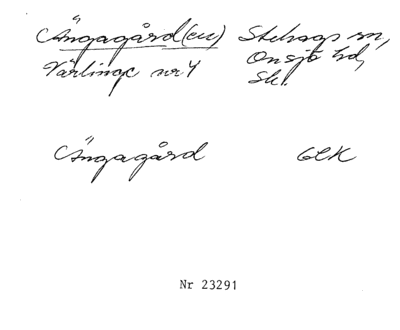 Ängagård(en) Stehags sn,
Värlinge nr 4 Onsjö hd,
Sk.
Ängagård GEK
Nr 23291